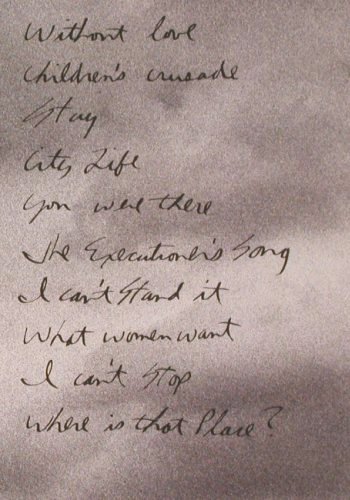 Without love
Children's crusade
Stay
City Life
You were there
The Executioner's Song
I can't Stand it
What women want
I can't Stop
Where is that Place?